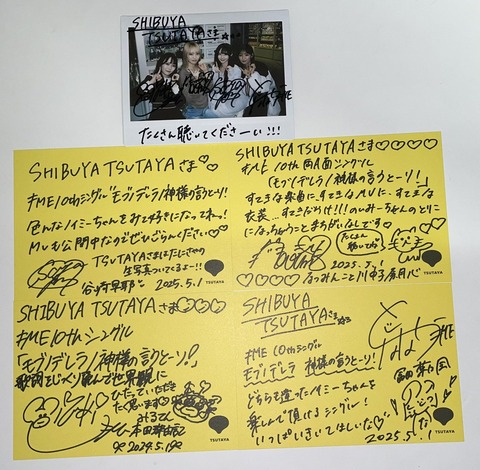 SHIBUYA
TSUTAYAさま☆
たくさん聴いてくださーい!!!
SHIBUYA TSUTAYAさま♡♡
≠ME10thシングル「モブノデレラ/神様の言うとーり!」
色んなノイミーちゃんをお好きになってねっ!
MVも公開中なのでぜひごらんください♡
TSUTAYAさまは
生写真ついてくるよー!!
2025.5.1
TSUTAYA
SHIBUYA TSUTAYAさま♡♡♡♡
≠ME 10th 両A面シングル
「モブノデレラ/神様の言うとーり!」
すてきな楽曲に、すてきなMVに、すてきな
衣装…すてきだらけ!!!のいみーちゃんのとりこ
になっちゃうことまちがいなしです♡
たくさん
聴いてね♡
2025.5.1
♡♡♡♡なつみんこと川中子奈月心
TSUTAYA
SHIBUYA TSUTAYAさま♡♡♡
≠ME 10thシングル
「モブノデレラ/神様の言うとーり!」
歌詞をじっくり読んで世界観に
ひたっていただき
たく思います♡
みるてん
本田珠由記
2024.5.1
TSUTAYA
SHIBUYA
TSUTAYAさま
≠ME 10thシングル
モブノデレラ/神様の言うとーり!
どちらも違ったノイミーちゃんを
楽しんで頂けるシングル!
いっぱいきいてほしいな♡
≠ME
冨田菜々風
2025.5.1
TSUTAYA